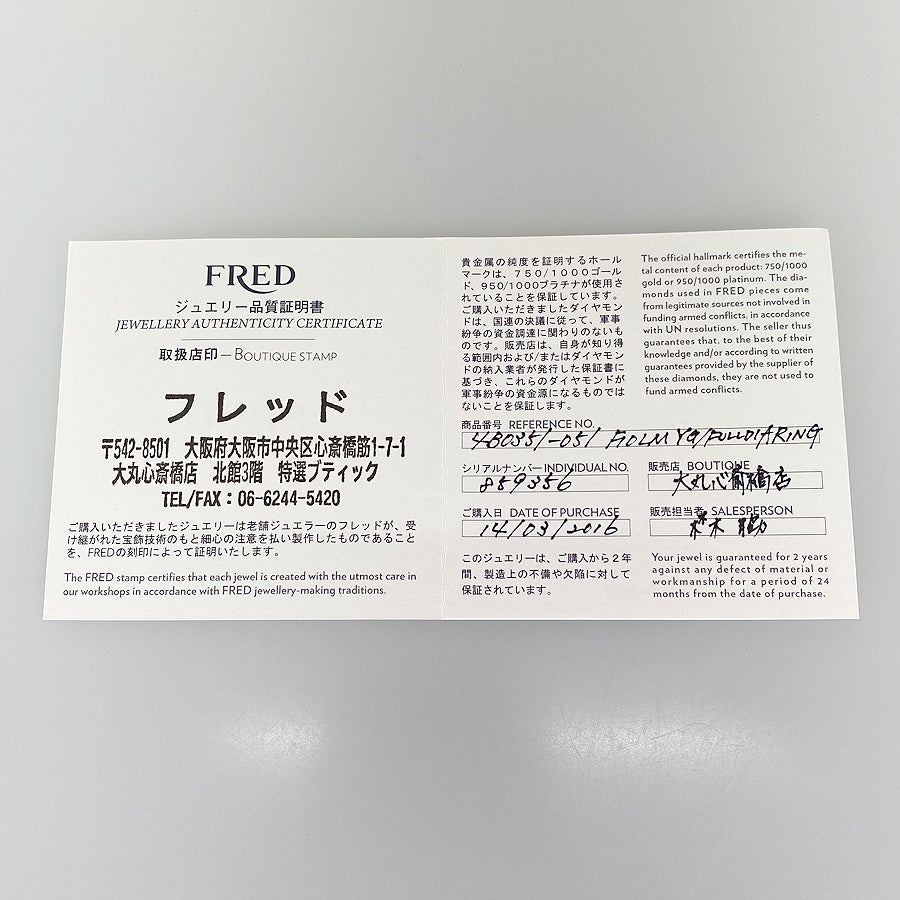 FRED
ジュエリー品質証明書
JEWELLERY AUTHENTICITY CERTIFICATE
取扱店印 — BOUTIQUE STAMP
フレッド
〒542-8501 大阪府大阪市中央区心斎橋筋1-7-1
大丸心斎橋店 北館3階 特選ブティック
TEL/FAX：06-6244-5420
ご購入いただきましたジュエリーは老舗ジュエラーのフレッドが、受
け継がれた宝飾技術のもと細心の注意を払い製作したものであること
を、FREDの刻印によって証明いたします。
The FRED stamp certifies that each jewel is created with the utmost care in
our workshops in accordance with FRED jewellery-making traditions.
貴金属の純度を証明するホール
マークは、750/1000ゴール
ド、950/1000プラチナが使用さ
れていることを保証しています。
ご購入いただきましたダイヤモン
ドは、国連の決議に従って、軍事
紛争の資金調達に関わりのないも
のです。販売店は、自身が知り得
る範囲内および/またはダイヤモン
ドの納入業者が発行した保証書に
基づき、これらのダイヤモンドが
軍事紛争の資金源になるものでは
ないことを保証します。
The official hallmark certifies the me-
tal content of each product: 750/1000
gold or 950/1000 platinum. The dia-
monds used in FRED pieces come
from legitimate sources not involved in
funding armed conflicts, in accordance
with UN resolutions. The seller thus
guarantees that, to the best of their
knowledge and/or according to written
guarantees provided by the supplier of
these diamonds, they are not used to
fund armed conflicts.
商品番号 REFERENCE NO.
4B0351-051 YG/FULLDIA RING
シリアルナンバー INDIVIDUAL NO.
859356
販売店 BOUTIQUE
大丸心斎橋店
ご購入日 DATE OF PURCHASE
14/03/2016
販売担当者 SALESPERSON
このジュエリーは、ご購入から2年
間、製造上の不備や欠陥に対して
保証されています。
Your jewel is guaranteed for 2 years
against any defect of material or
workmanship for a period of 24
months from the date of purchase.